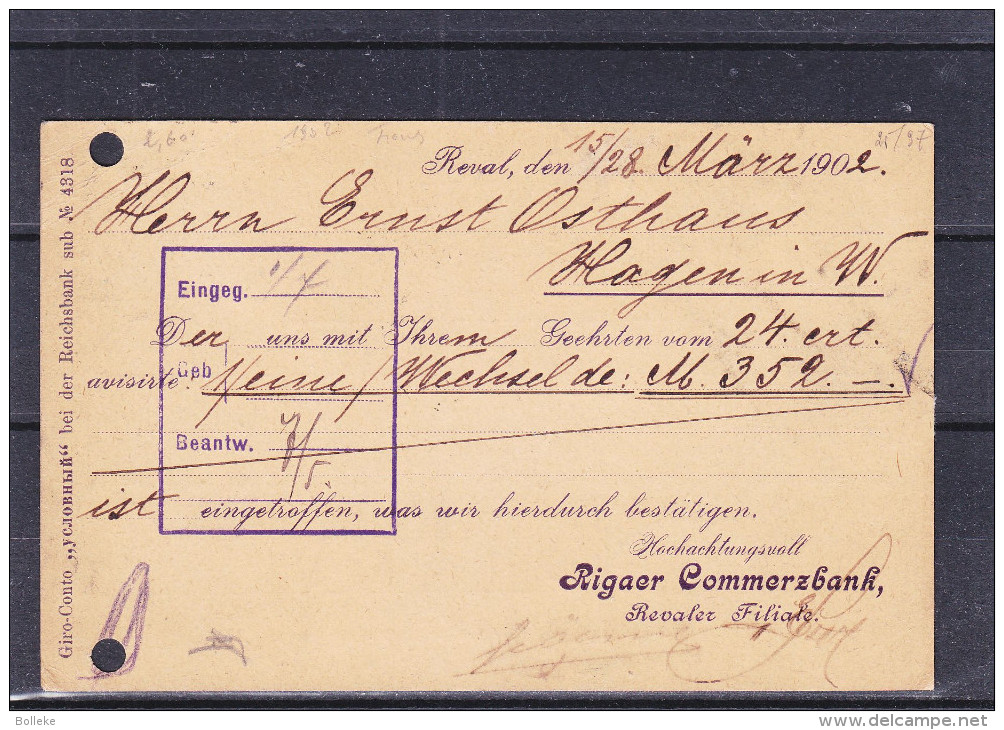 2,60 1902
25/97
Reval, den 15/28. März 1902.
Herrn Ernst Osthaus
Hagen in W.
Eingeg. 1/7
Der uns mit Ihrem Geehrten vom 24. crt.
Geb
avisirte Wechsel de: M. 352.—.
Beantw. 7/5.
ist eingetroffen, was wir hierdurch bestätigen.
Hochachtungsvoll
Rigaer Commerzbank,
Revaler Filiale.
Giro-Conto „условный“ bei der Reichsbank sub № 4318.
Bolleke
www.delcampe.net